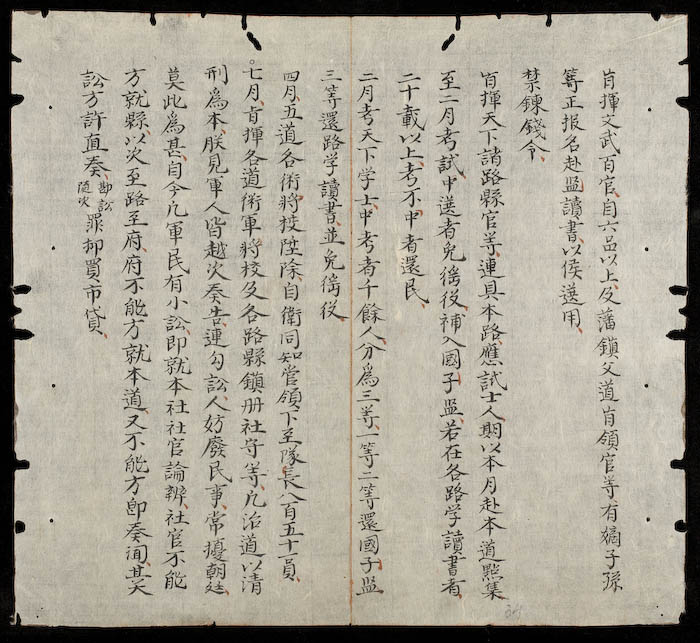 肯揮文武百官自六品以上及藩鎖父道肯領官等有嫡子孫
等正报名赴监讀書以侯送用
禁鍊錢令
肯揮天下諸路縣官等連具本路應試士人期以本月赴本道點集
至二月考試中送者免徭役補入國子监若在各路学讀書者
二十載以上考不中者還民
二月考天下学士中考者千餘人分為三等一等二等還國子监
三等還路学讀書並免徭役
四月五道各術將授陞除自衛同知管領下至隊長八百五十一員
七月肯揮各道術軍將校及各路縣鎖册社守等凡治道以清
刑為本朕見軍人皆越次奏告連勾訟人妨廢民事常擾朝廷
莫此為甚自今凡軍民有小訟即就本社社官論辨社官不能
方就縣以次至路至府府不能方就本道又不能方即奏聞其大
訟方許直奏勘訟隨次罪抑買市貸